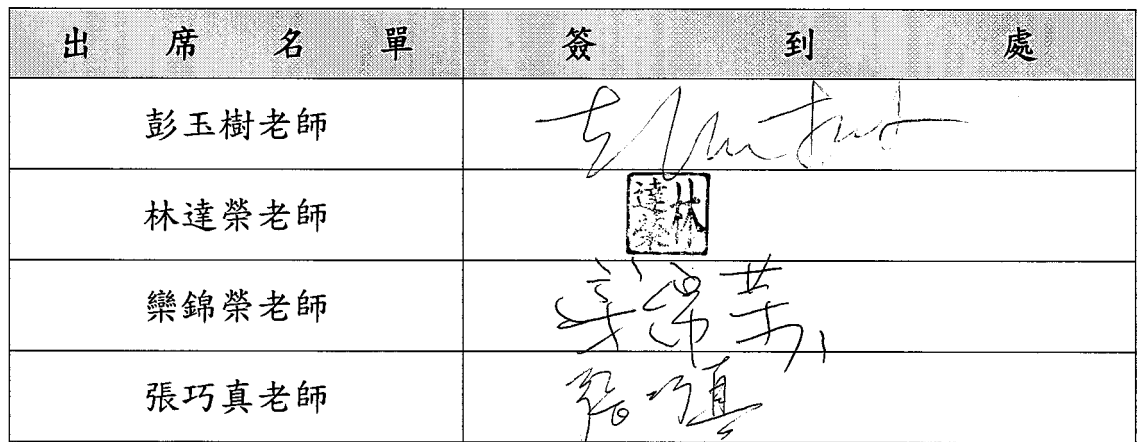 出席名單 簽到處
彭玉樹老師
林達榮老師 林達榮
欒錦榮老師 欒錦榮
張巧真老師 張巧真